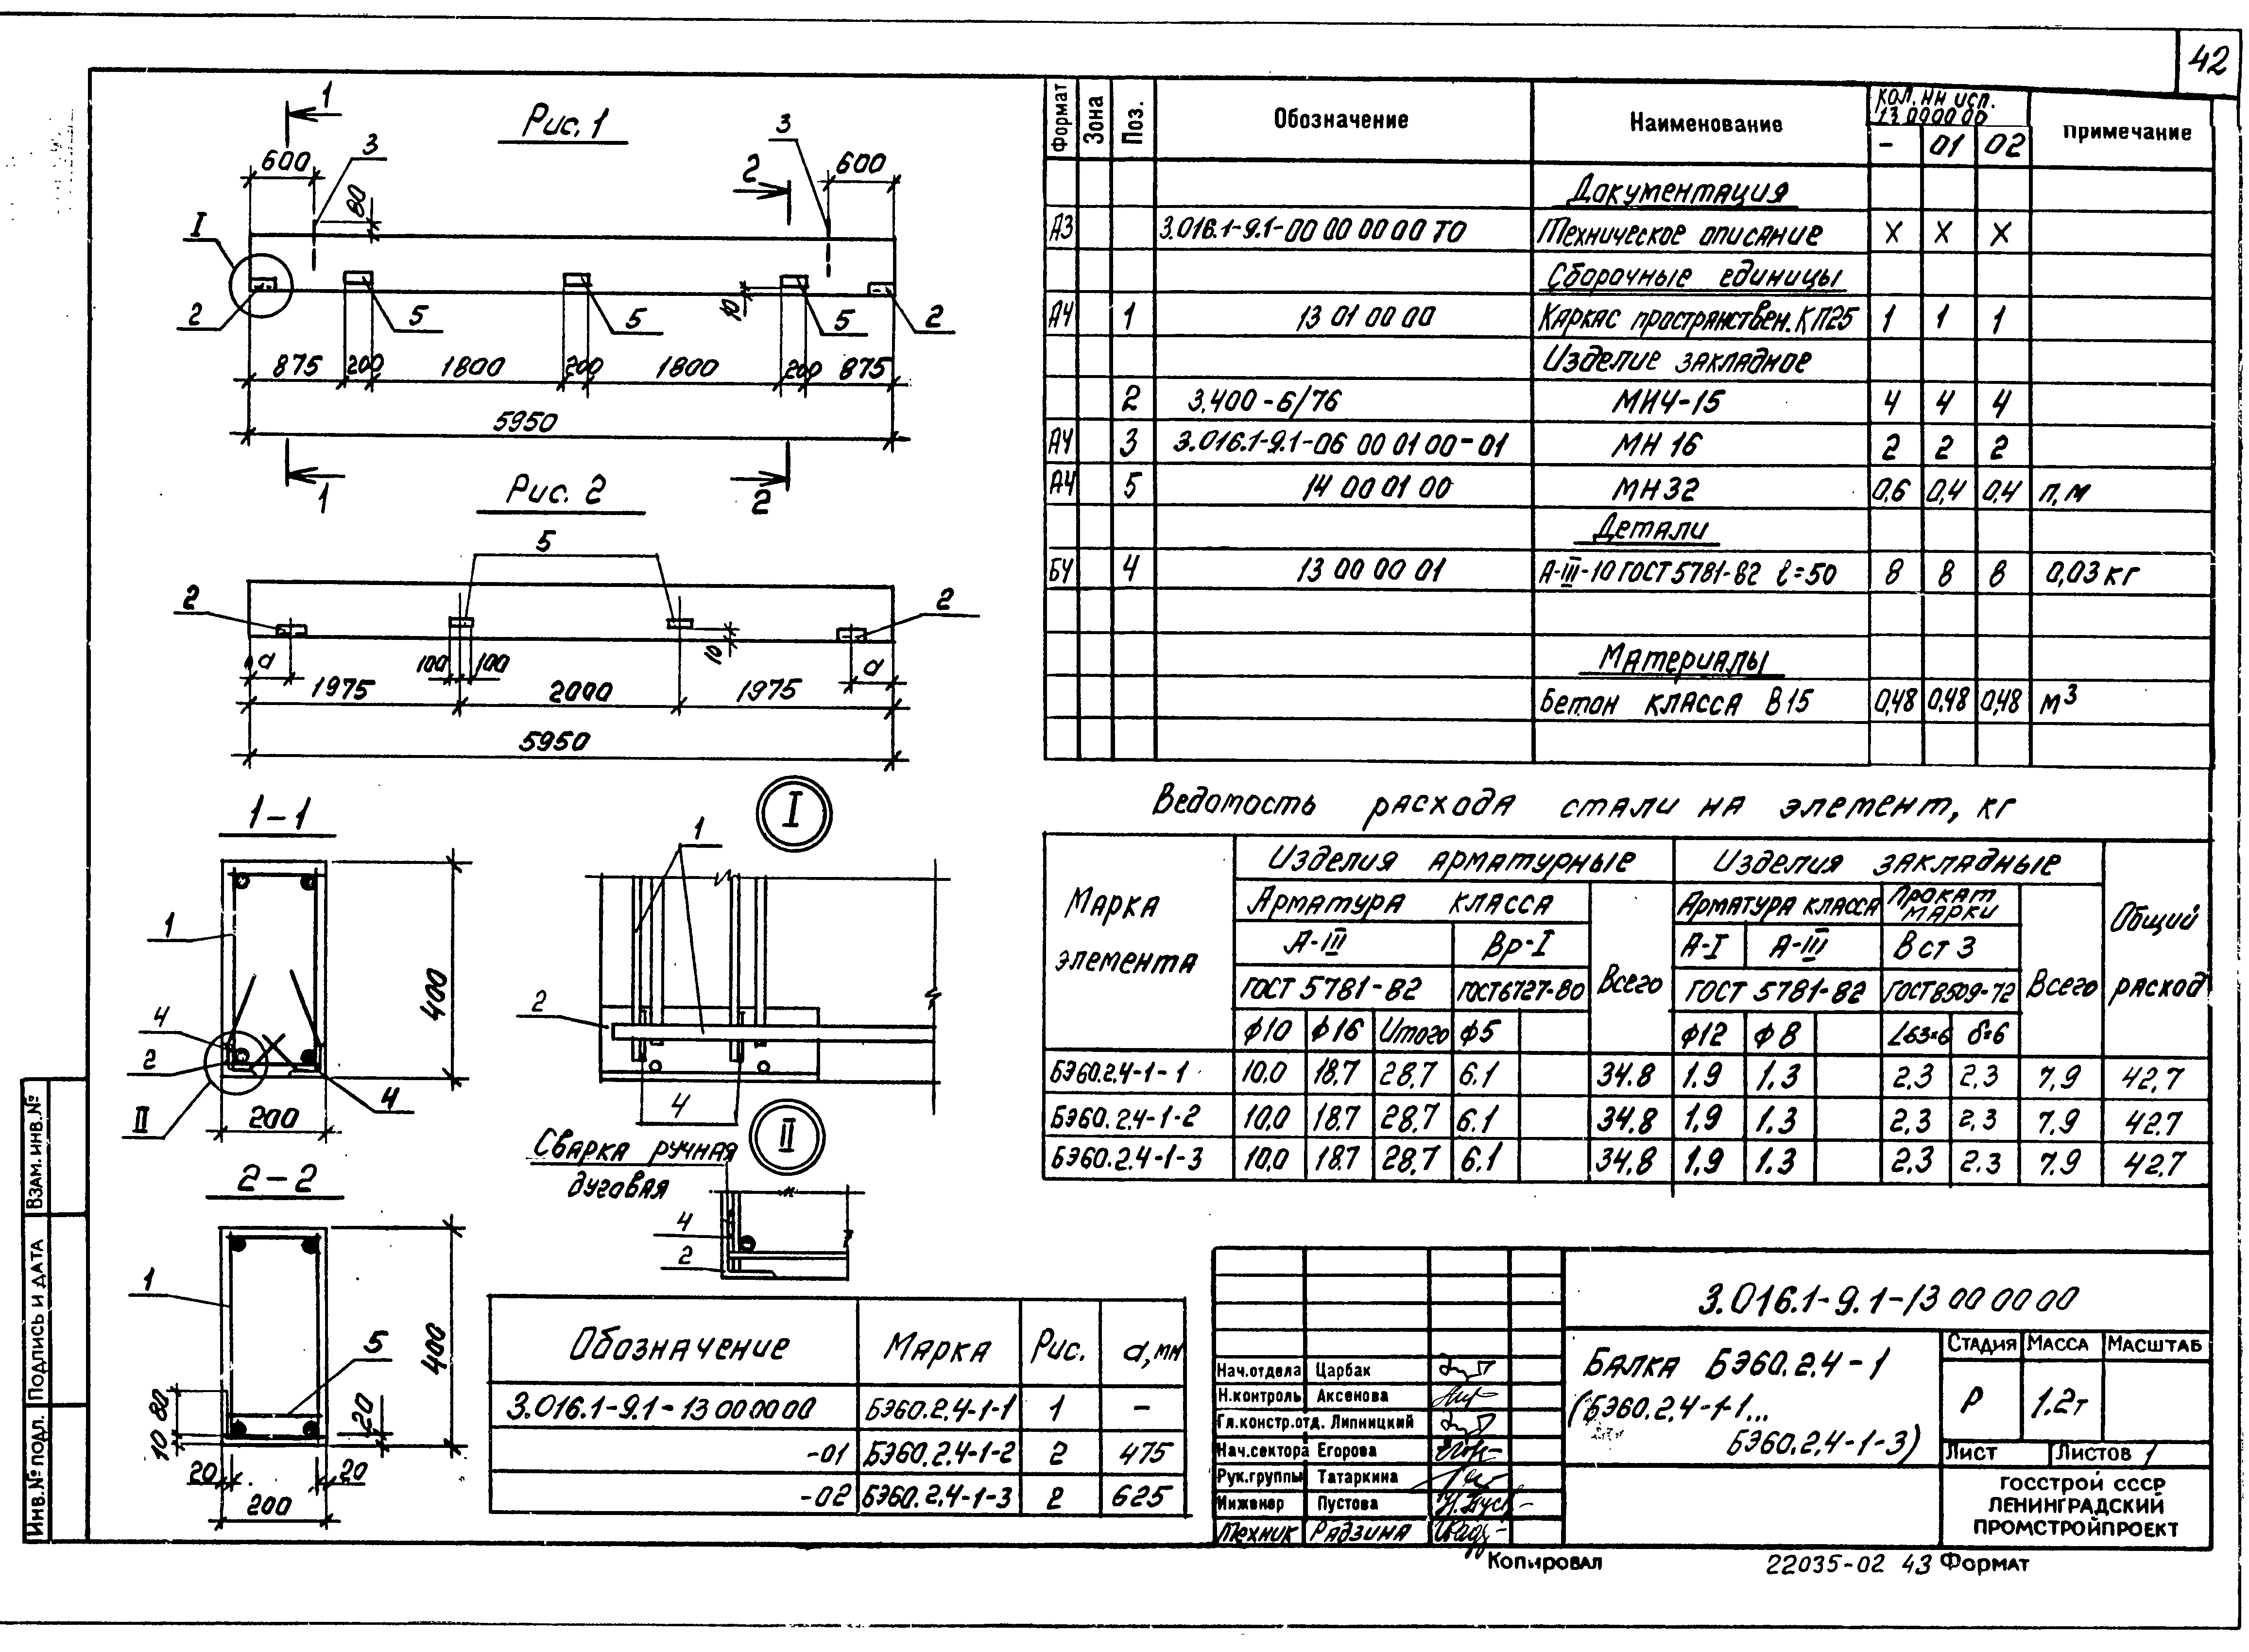 42
Рис. 1
1
1
600
3
80
3
2
600
I
2
5
5
10
5
2
875
200
1800
200
1800
200
875
5950
1
2
Рис. 2
5
2
2
а
100
100
10
а
1975
2000
1975
5950
1-1
1
4
2
II
4
400
200
I
1
2
4
II
Сварка ручная
дуговая
4
2
2-2
1
5
400
80
10
20
20
20
200
Формат
Зона
Поз.
Обозначение
Наименование
Кол. на исп.
13 00 00 00
- 01 02
Примечание
Документация
А3 3.016.1-9.1-00 00 00 00 ТО Техническое описание X X X
Сборочные единицы
А4 1 13 01 00 00 Каркас пространствен. КП25 1 1 1
Изделие закладное
2 3.400-6/76 МН4-15 4 4 4
А4 3 3.016.1-9.1-06 00 01 00-01 МН 16 2 2 2
А4 5 14 00 01 00 МН32 0,6 0,4 0,4 п.м
Детали
БЧ 4 13 00 00 01 А-III-10 ГОСТ 5781-82 ℓ=50 8 8 8 0,03 кг
Материалы
Бетон класса В15 0,48 0,48 0,48 м³
Ведомость расхода стали на элемент, кг
Марка
элемента
Изделия арматурные
Изделия закладные
Общий
расход
Арматура класса
Всего
Арматура класса
Прокат
марки
Всего
А-III Вр-I А-I А-III Вст 3
ГОСТ 5781-82 ГОСТ 6727-80 ГОСТ 5781-82 ГОСТ 8509-72
ф10 ф16 Итого ф5 ф12 ф8 L63×6 δ=6
БЭ60.2.4-1-1 10.0 18.7 28.7 6.1 34.8 1.9 1.3 2.3 2.3 7.9 42.7
БЭ60.2.4-1-2 10.0 18.7 28.7 6.1 34.8 1.9 1.3 2.3 2.3 7.9 42.7
БЭ60.2.4-1-3 10.0 18.7 28.7 6.1 34.8 1.9 1.3 2.3 2.3 7.9 42.7
Обозначение Марка Рис. а, мм
3.016.1-9.1-13 00 00 00 БЭ60.2.4-1-1 1 -
-01 БЭ60.2.4-1-2 2 475
-02 БЭ60.2.4-1-3 2 625
3.016.1-9.1-13 00 00 00
Нач.отдела Царбак
Н.контроль Аксенова
Гл.констр.отд. Липницкий
Нач.сектора Егорова
Рук.группы Татаркина
Инженер Пустова
Техник Радзина
Балка БЭ60.2.4-1
(БЭ60.2.4-1-1...
БЭ60.2.4-1-3)
Стадия Масса Масштаб
Р 1.2т
Лист Листов 1
ГОССТРОЙ СССР
ЛЕНИНГРАДСКИЙ
ПРОМСТРОЙПРОЕКТ
Копировал
22035-02 43 Формат
Инв.№ подл.
Подпись и дата
Взам. инв.№